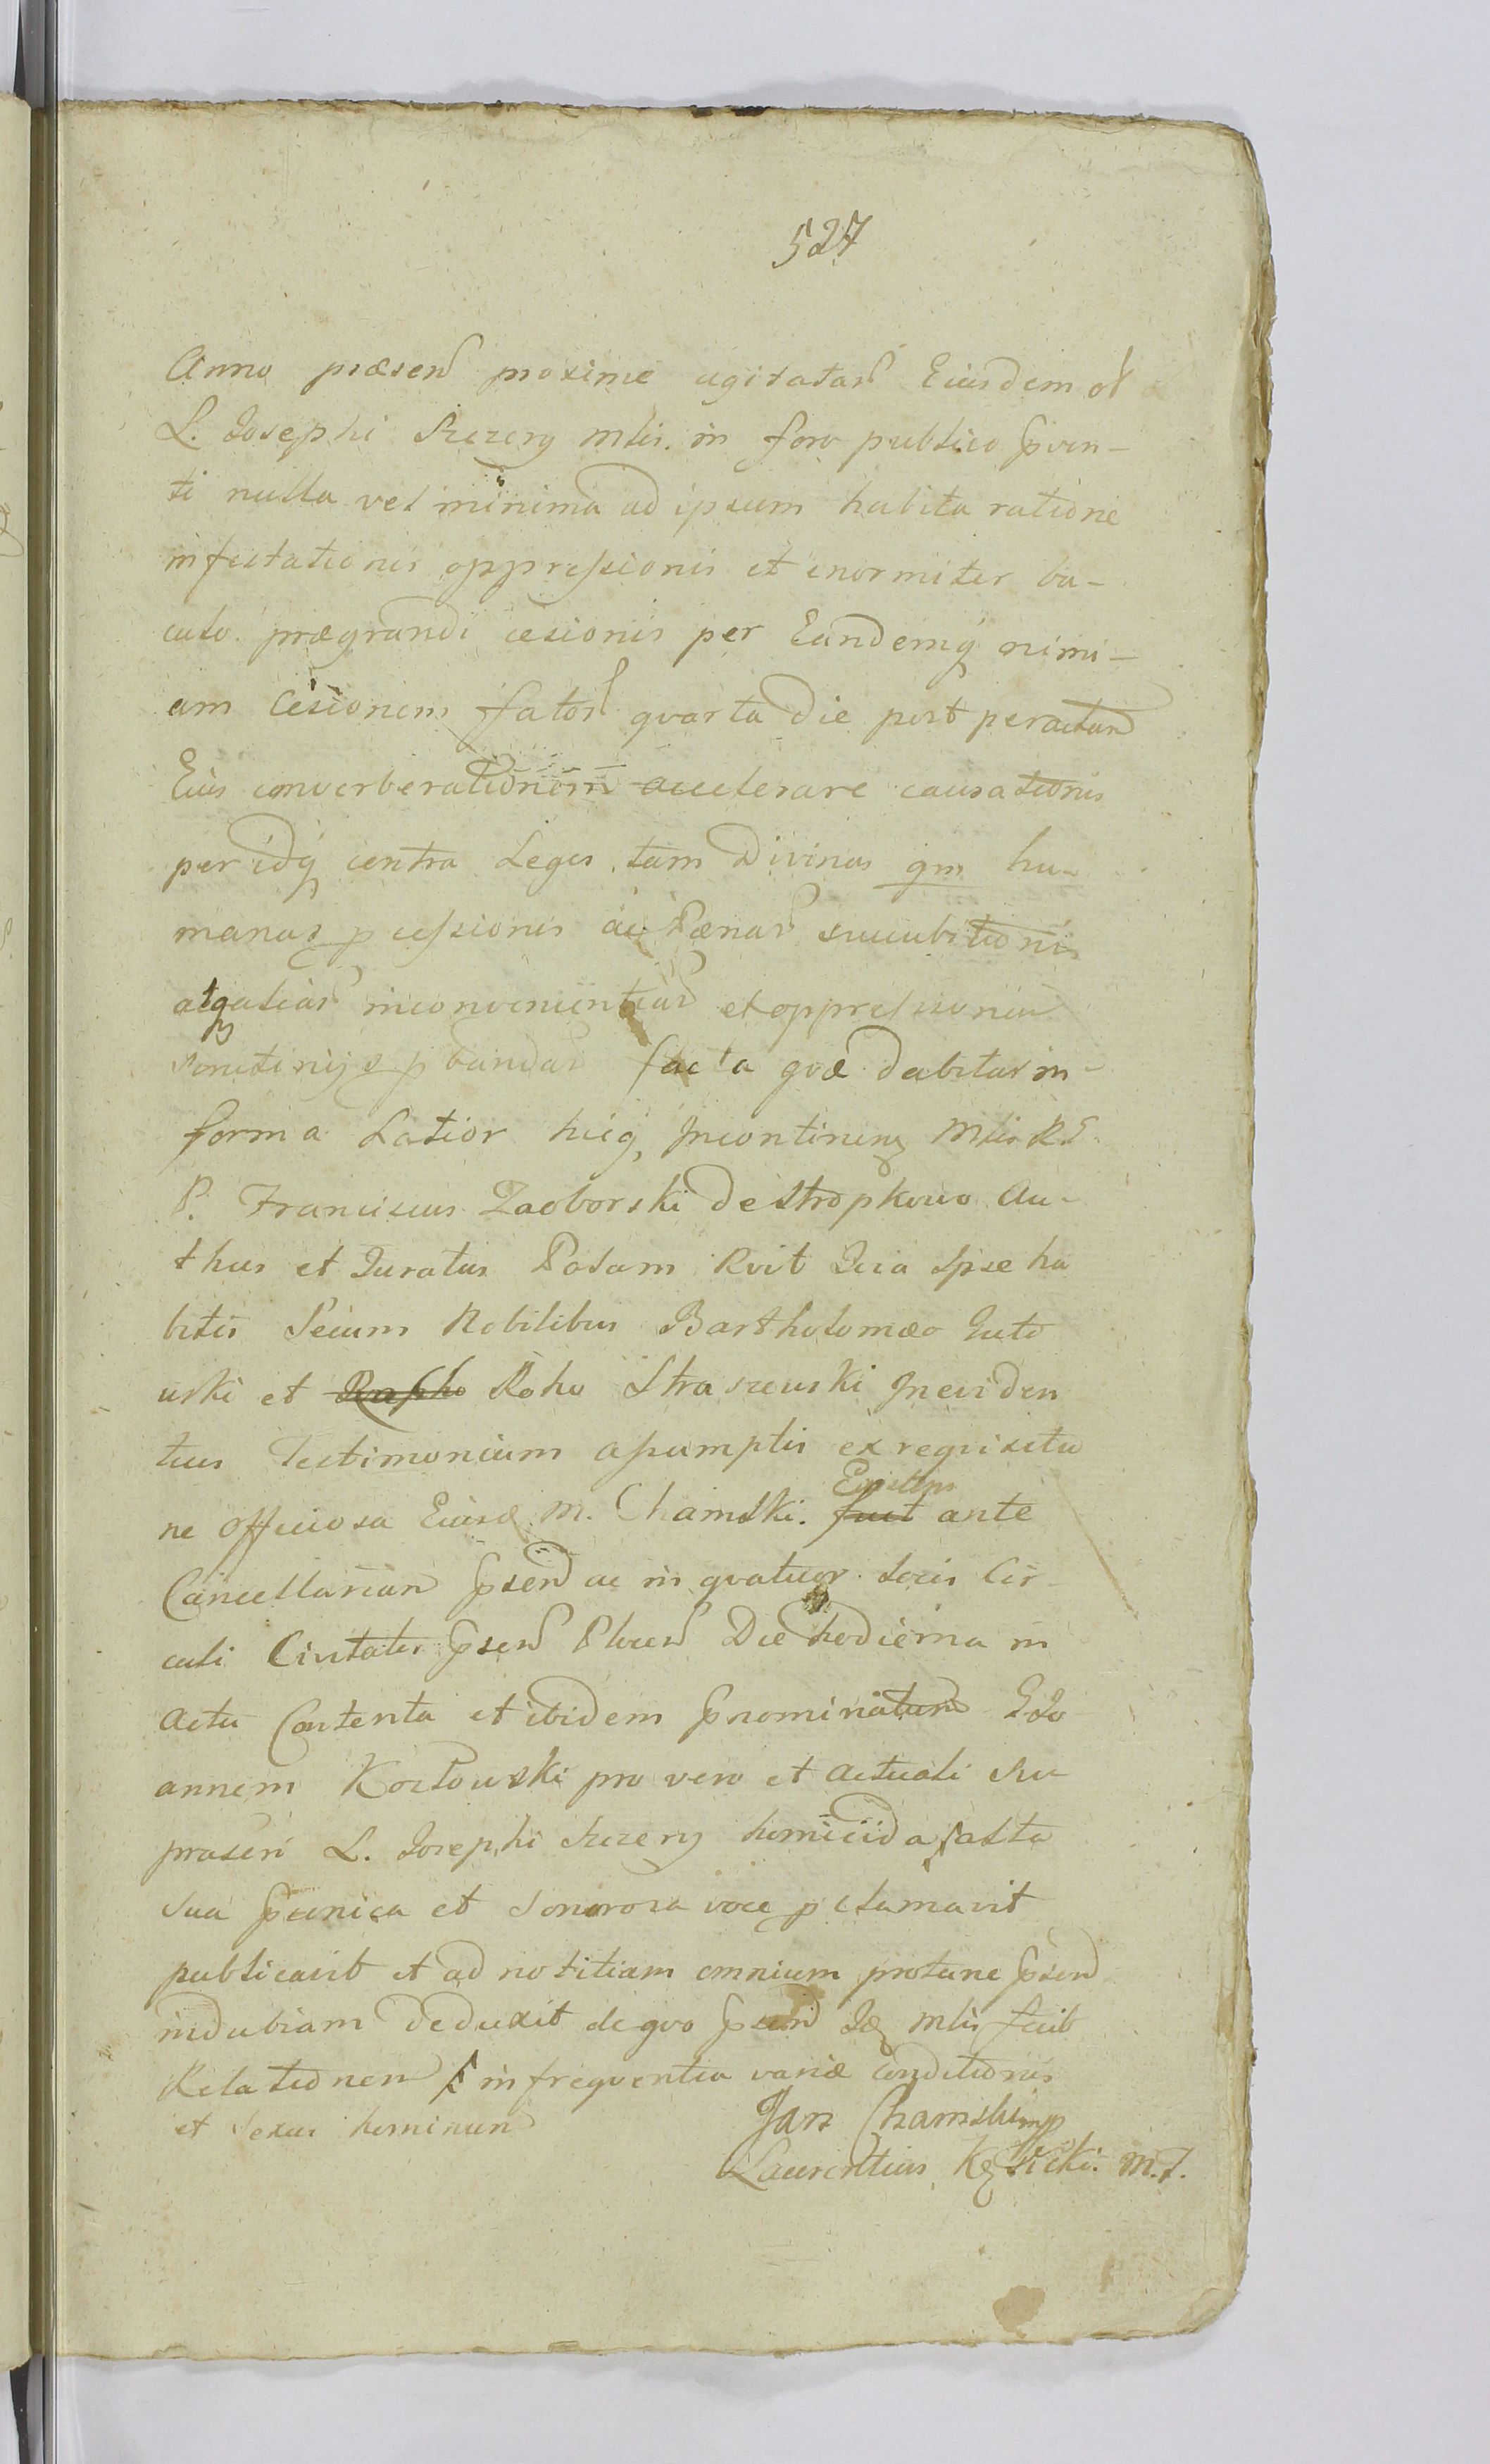 527
Anno præsen proxime agitatar Eiusdem ol
L. Josephi Szczery Mlis. in foro publico sven-
ti nulla vel minima ad ipsum habita ratione
infestationis oppressionis et enormiter ba-
culo prægrandi cæsionis per Eandemq nimi-
am Cæsionem fator quarta die post peractam
Eius converberationem accelerare causationis
per idq contra Leges tam Divinas qm hu-
manas p cessionis ac Pænar succubitionis
atq aliar inconvenientiar et oppressionum
scrutinijs p bandar facta quæ dabitur in
forma Latior hicq Incontinens Mlis RG
P. Franciscus Zaborski de Stropkowo Au-
thus et Juratus Palam Rvit Quia Ipse ha
bitis Secum Nobilibus Bartholomæo Guto
wski et Rocho Roho Straszewski In eviden
tius Testimonium assumptis ex requisitio
ne officiosa Eiusd M. Chamski. fuit Existens ante
Cancellariam psen ac in quatuor locis Cir
culi Civitatis psen Plocen Die hodierna in
Actu Contenta et ibidem pnominatum G Jo
annem Kozłowski pro vero et actuali su
prascri L. Josephi Szczery homicida alta
sua et sonorosa voce p clamavit
publicavit et ad notitiam omnium protunc psen
indubiam deduxit de quo Mlis fecit
Relationem in frequentia variæ conditionis
et Sexus hominum
Jan Chamski mp
Laurentius Kęsicki. M.T.